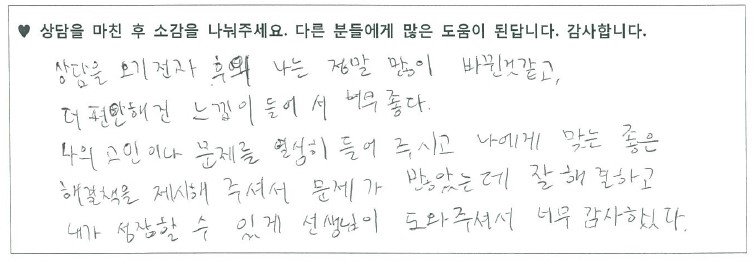 ♥ 상담을 마친 후 소감을 나눠주세요. 다른 분들에게 많은 도움이 된답니다. 감사합니다.
상담을 오기전자 후의 나는 정말 많이 바뀐것같고,
더 편안해진 느낌이 들어서 너무 좋다.
나의 고민이나 문제를 열심히 들어 주시고 나에게 맞는 좋은
해결책을 제시해 주셔서 문제가 많았는데 잘 해결하고
내가 성장할 수 있게 선생님이 도와주셔서 너무 감사하다.